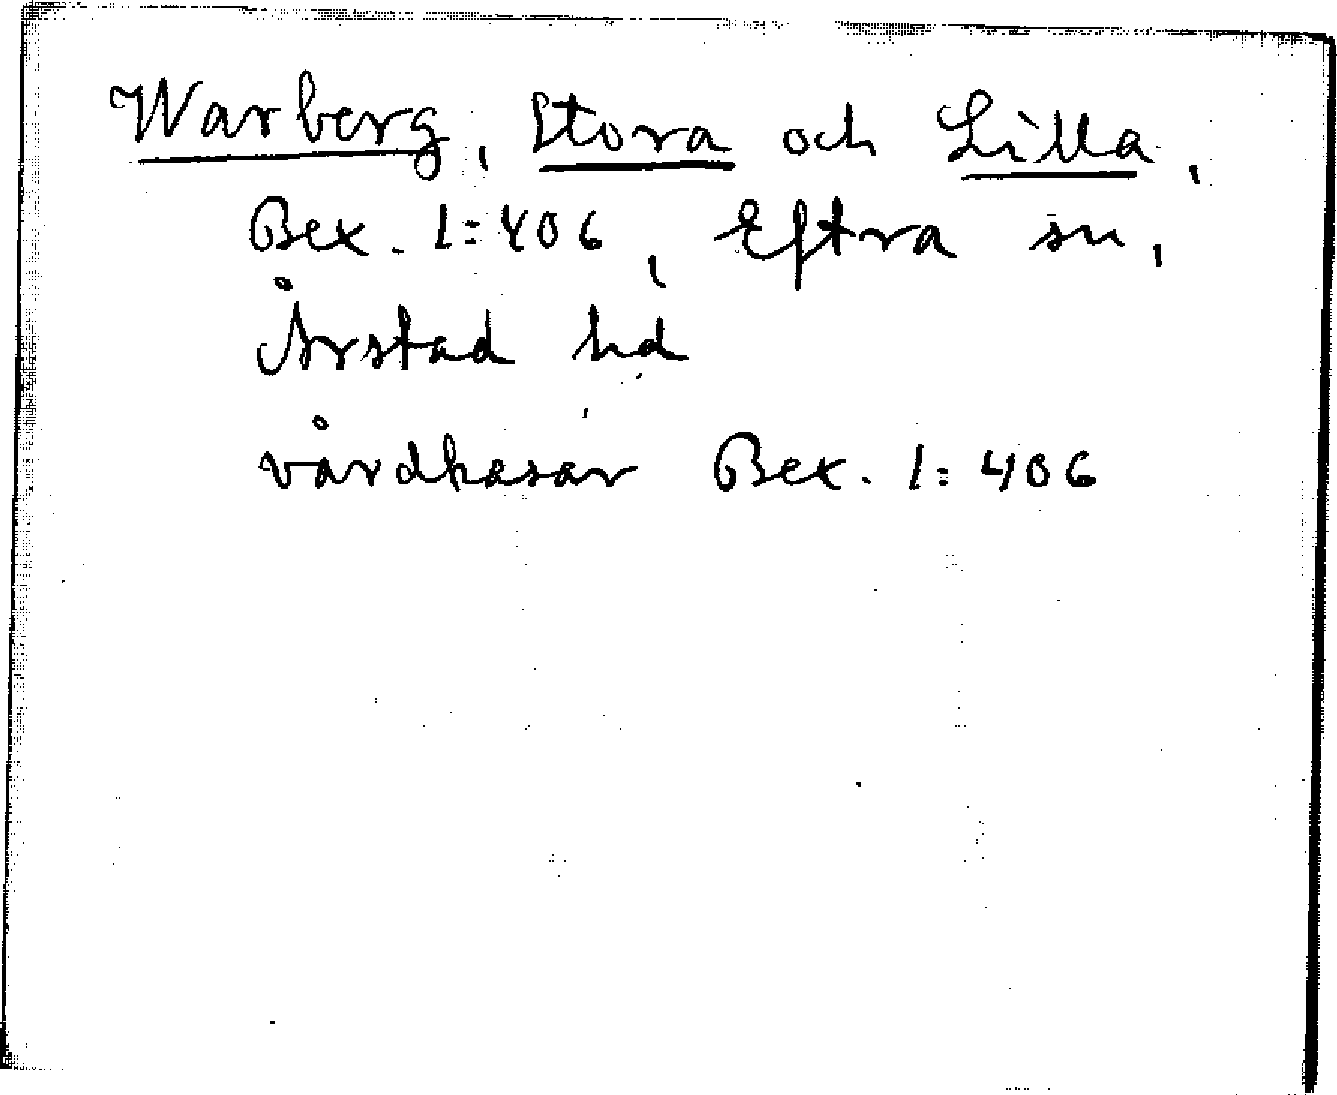 Warberg, Stora och Lilla,
Bex. 1:406, Eftra sn,
Årstad hd
vårdkasar Bex. 1:406